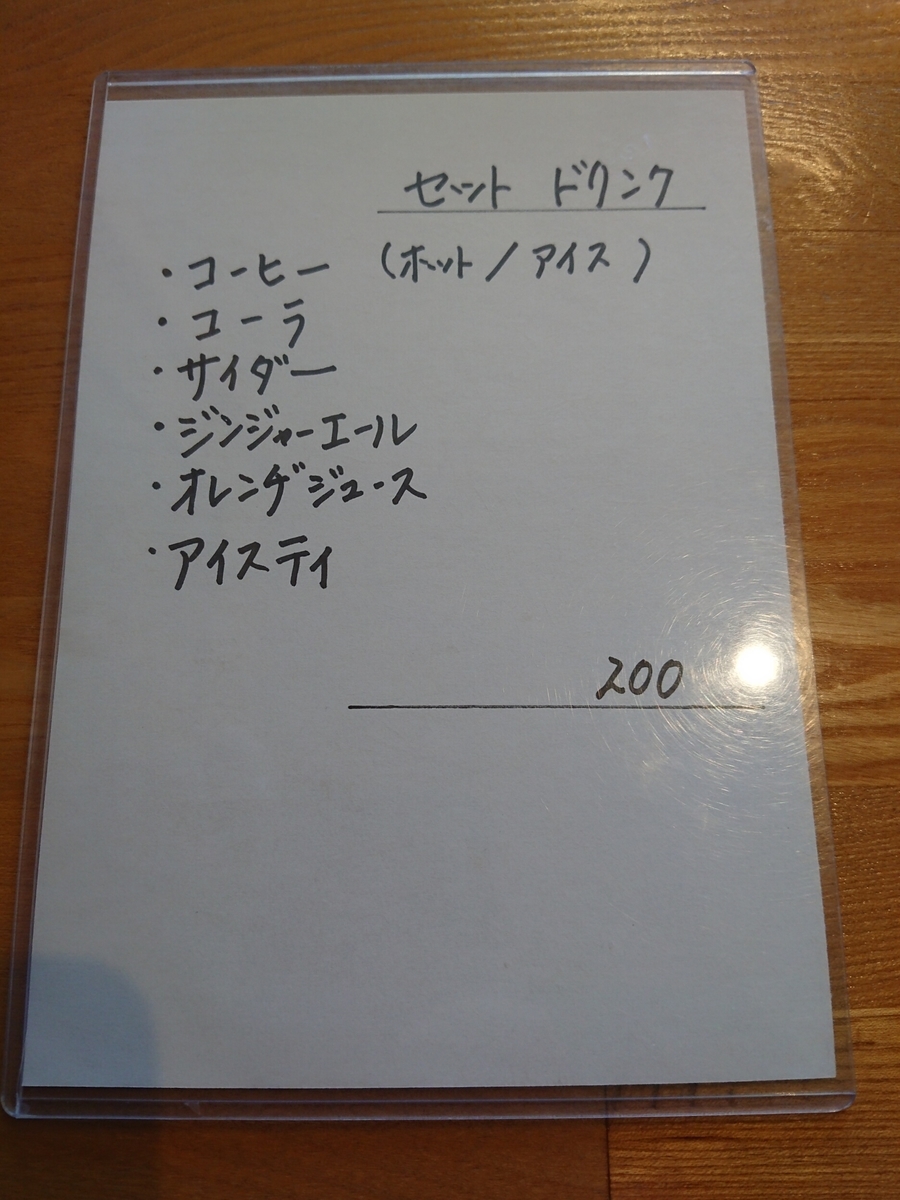 セット ドリンク
・コーヒー (ホット/アイス)
・コーラ
・サイダー
・ジンジャーエール
・オレンヂジュース
・アイスティ
200